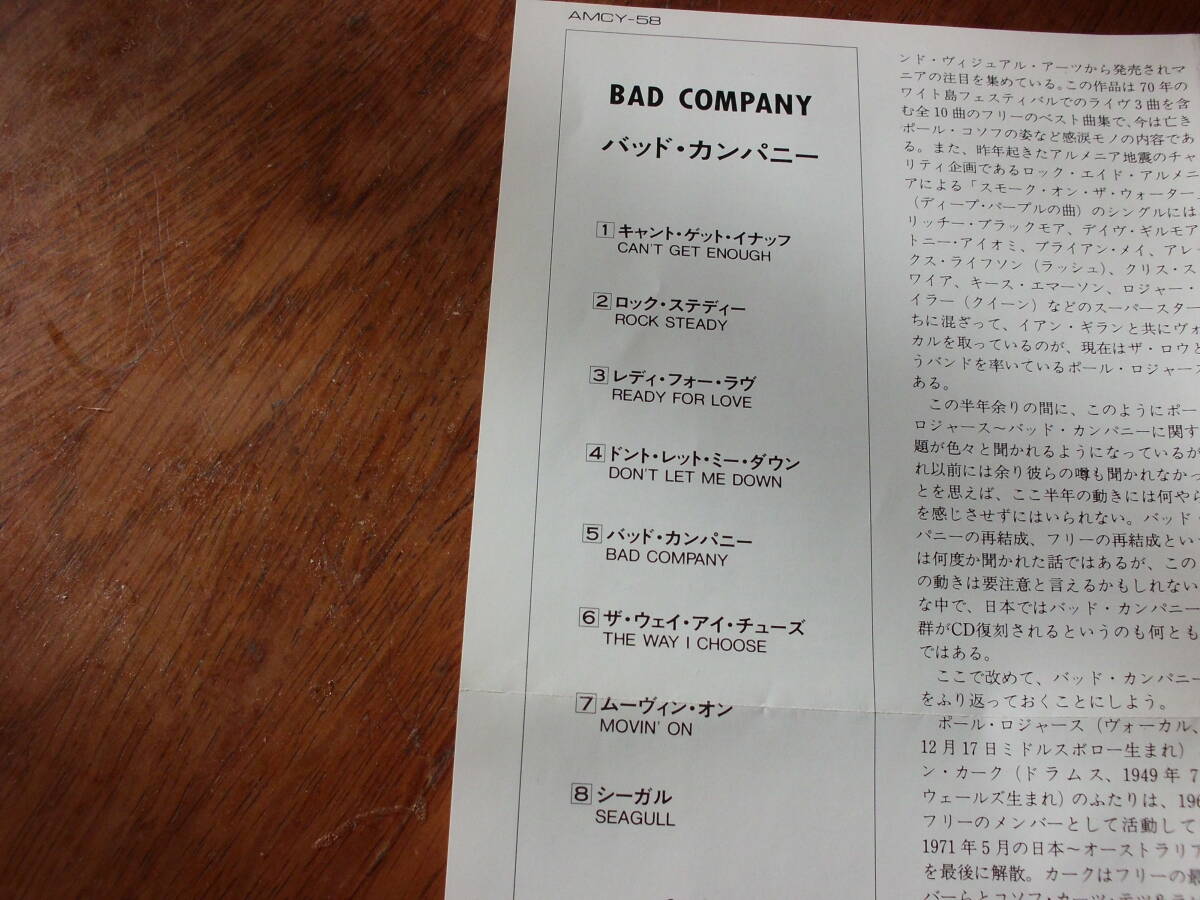 AMCY-58
BAD COMPANY
バッド・カンパニー
1 キャント・ゲット・イナッフ
CAN'T GET ENOUGH
2 ロック・ステディー
ROCK STEADY
3 レディ・フォー・ラヴ
READY FOR LOVE
4 ドント・レット・ミー・ダウン
DON'T LET ME DOWN
5 バッド・カンパニー
BAD COMPANY
6 ザ・ウェイ・アイ・チューズ
THE WAY I CHOOSE
7 ムーヴィン・オン
MOVIN' ON
8 シーガル
SEAGULL
ンド・ヴィジュアル・アーツから発売されマ
ニアの注目を集めている。この作品は70年の
ワイト島フェスティバルでのライヴ3曲を含
む全10曲のフリーのベスト曲集で、今は亡き
ポール・コソフの姿など感涙モノの内容であ
る。また、昨年起きたアルメニア地震のチャ
リティ企画であるロック・エイド・アルメニ
アによる「スモーク・オン・ザ・ウォーター」
（ディープ・パープルの曲）のシングルには
リッチー・ブラックモア、デイヴ・ギルモア
トニー・アイオミ、ブライアン・メイ、アレ
クス・ライフソン（ラッシュ）、クリス・ス
ワイア、キース・エマーソン、ロジャー・
イラー（クイーン）などのスーパースター
ちに混ざって、イアン・ギランと共にヴォ
カルを取っているのが、現在はザ・ロウと
うバンドを率いているポール・ロジャース
ある。
この半年余りの間に、このようにポー
ロジャース～バッド・カンパニーに関す
題が色々と聞かれるようになっているが
れ以前には余り彼らの噂も聞かれなかっ
とを思えば、ここ半年の動きには何やら
を感じさせずにはいられない。バッド・
パニーの再結成、フリーの再結成とい
は何度か聞かれた話ではあるが、この
の動きは要注意と言えるかもしれない
な中で、日本ではバッド・カンパニー
群がCD復刻されるというのも何とも
ではある。
ここで改めて、バッド・カンパニー
をふり返っておくことにしよう。
ポール・ロジャース（ヴォーカル、
12月17日ミドルスボロー生まれ）
ン・カーク（ドラムス、1949年7
ウェールズ生まれ）のふたりは、196
フリーのメンバーとして活動して
1971年5月の日本～オーストラリア
を最後に解散。カークはフリーの最
バーらとコソフ・カーク・テツ&ラ